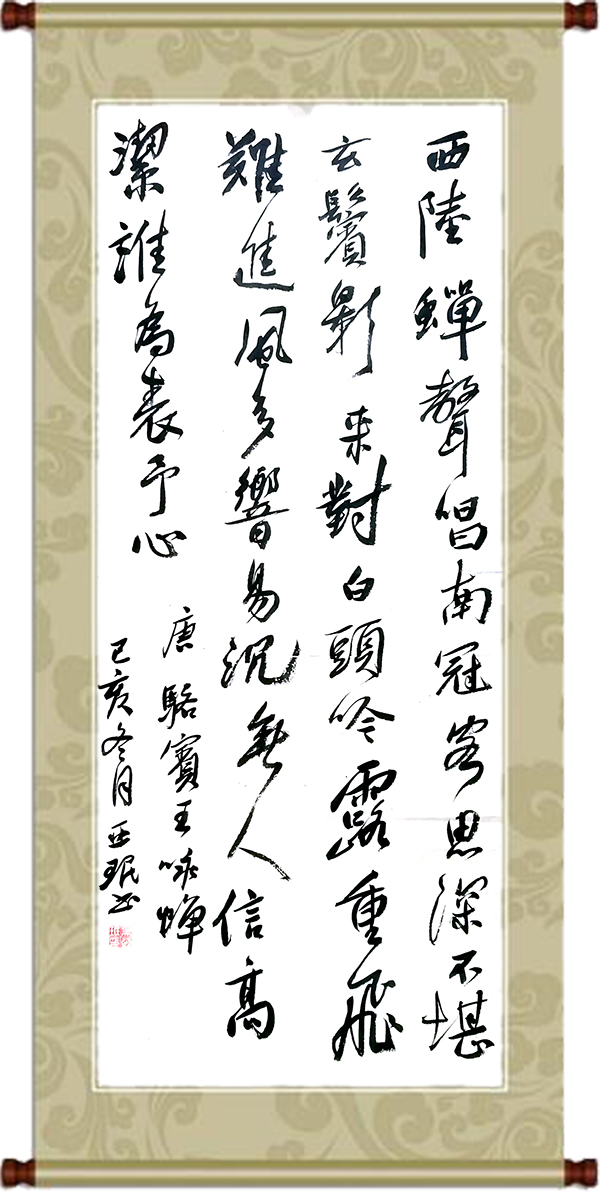 西陸蟬聲唱南冠客思深不堪
玄鬢影来對白頭吟露重飛
難進風多響易沉無人信高
潔誰為表予心
唐駱賓王咏蟬
己亥冬月亚珉书